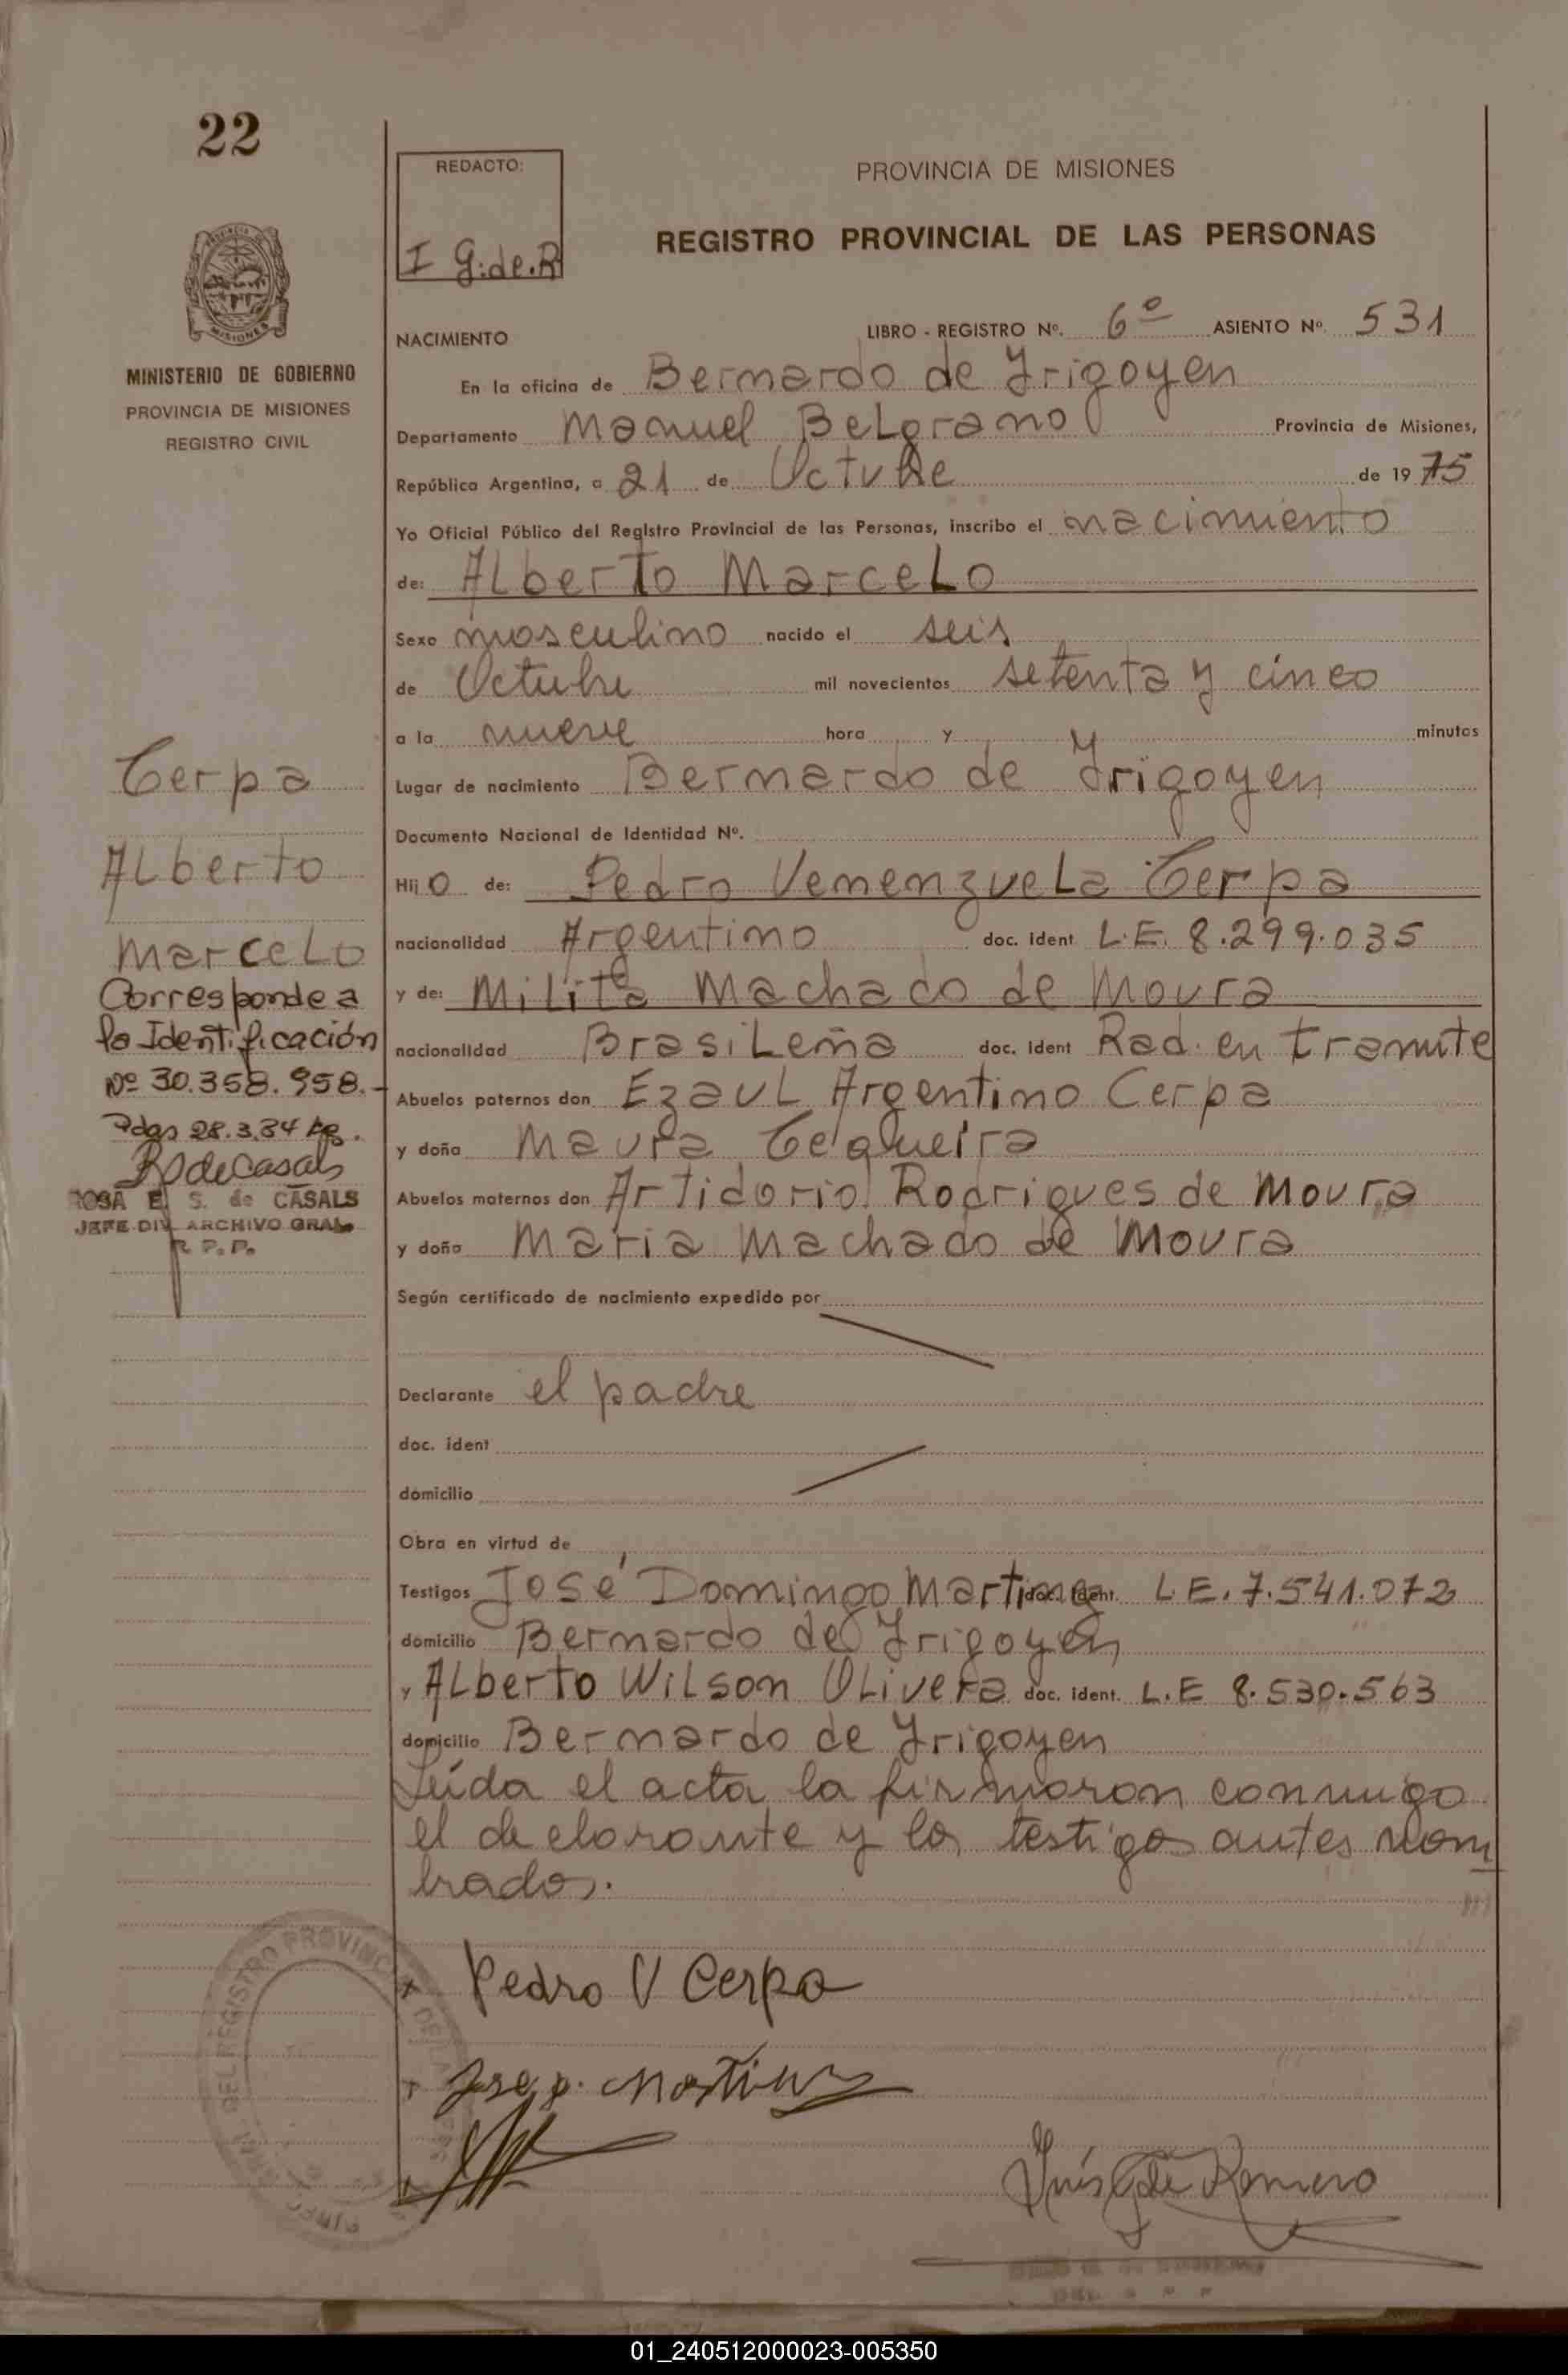 22
REDACTO:
I G.de.R
PROVINCIA DE MISIONES
REGISTRO PROVINCIAL DE LAS PERSONAS
MINISTERIO DE GOBIERNO
PROVINCIA DE MISIONES
REGISTRO CIVIL
NACIMIENTO
LIBRO - REGISTRO Nº. 6º ASIENTO Nº. 531
En la oficina de Bernardo de Yrigoyen
Departamento Manuel Belgrano Provincia de Misiones,
República Argentina, a 21 de Octubre de 1975
Yo Oficial Público del Registro Provincial de las Personas, inscribo el nacimiento
de: Alberto Marcelo
Sexo masculino nacido el seis
de Octubre mil novecientos setenta y cinco
a la nueve hora y minutos
Lugar de nacimiento Bernardo de Yrigoyen
Documento Nacional de Identidad Nº.
Hijo de: Pedro Venenzuela Cerpa
nacionalidad Argentino doc. ident L.E. 8.299.035
y de: Milita Machado de Moura
nacionalidad Brasileña doc. ident Rad. en tramite
Abuelos paternos don Ezaul Argentino Cerpa
y doña Maura Cequeira
Abuelos maternos don Artidorio Rodrigues de Moura
y doña Maria Machado de Moura
Según certificado de nacimiento expedido por
Declarante el padre
doc. ident
domicilio
Obra en virtud de
Testigos José Domingo Martinez doc. ident. L.E. 7.541.072
domicilio Bernardo de Yrigoyen
y Alberto Wilson Olivera doc. ident. L.E 8.530.563
domicilio Bernardo de Yrigoyen
Leída el acta la firmaron conmigo
el declarante y los testigos antes nom
brados.
Cerpa
Alberto
Marcelo
Corresponde a
la Identificación
Nº 30.358.958.-
Pdas 28.3.84
RSdeCasals
ROSA E. S. de CASALS
JEFE DIV. ARCHIVO GRAL.
R. P. P.
Pedro V Cerpa
Jose D. Martinez
Inés G de Romero
DEL REGISTRO PROVINCIAL DE LAS
01_240512000023-005350